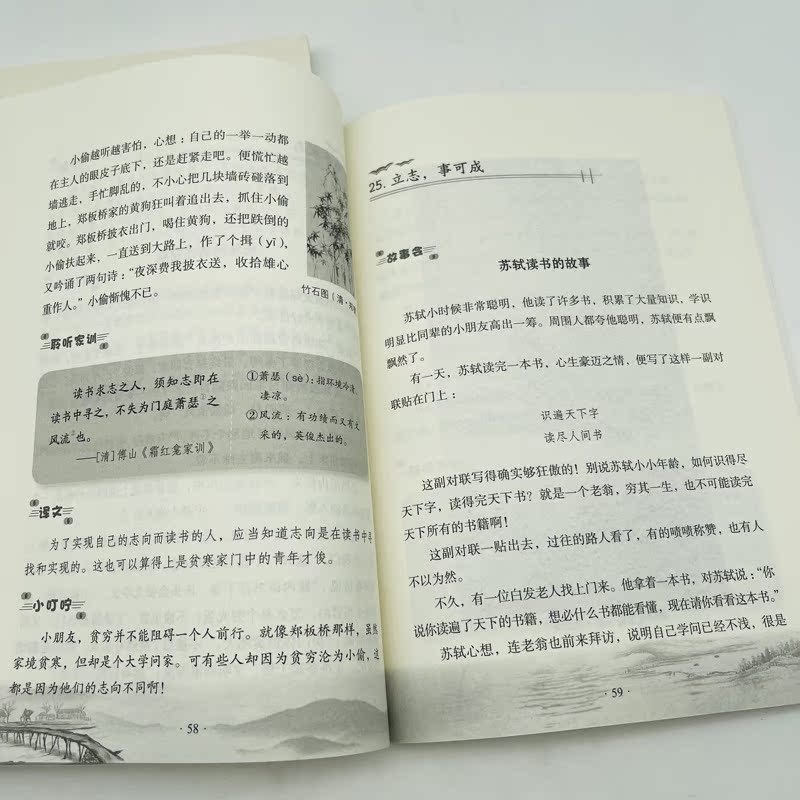 小偷越听越害怕，心想：自己的一举一动都
在主人的眼皮子底下，还是赶紧走吧。便慌忙越
墙逃走，手忙脚乱的，不小心把几块墙砖碰落到
地上，郑板桥家的黄狗狂叫着追出去，抓住小偷
就咬。郑板桥披衣出门，喝住黄狗，还把跌倒的
小偷扶起来，一直送到大路上，作了个揖（yī），
又吟诵了两句诗：“夜深费我披衣送，收拾雄心
重作人。”小偷惭愧不已。
竹石图（清·郑
聆听家训
读书求志之人，须知志即在
读书中寻之，不失为门庭萧瑟①之
风流②也。
——[清]傅山《霜红龛家训》
①萧瑟（sè）：指环境冷清、
凄凉。
②风流：有功绩而又有文
采的，英俊杰出的。
译文
为了实现自己的志向而读书的人，应当知道志向是在读书中寻
找和实现的。这也可以算得上是贫寒家门中的青年才俊。
小叮咛
小朋友，贫穷并不能阻碍一个人前行。就像郑板桥那样，虽然
家境贫寒，但却是个大学问家。可有些人却因为贫穷沦为小偷，这
都是因为他们的志向不同啊！
58
25. 立志，事可成
故事会
苏轼读书的故事
苏轼小时候非常聪明，他读了许多书，积累了大量知识，学识
明显比同辈的小朋友高出一筹。周围人都夸他聪明，苏轼便有点飘
飘然了。
有一天，苏轼读完一本书，心生豪迈之情，便写了这样一副对
联贴在门上：
识遍天下字
读尽人间书
这副对联写得确实够狂傲的！别说苏轼小小年龄，如何识得尽
天下字，读得完天下书？就是一个老翁，穷其一生，也不可能读完
天下所有的书籍啊！
这副对联一贴出去，过往的路人看了，有的啧啧称赞，也有人
不以为然。
不久，有一位白发老人找上门来。他拿着一本书，对苏轼说：“你
说你读遍了天下的书籍，想必什么书都能看懂，现在请你看看这本书。”
苏轼心想，连老翁也前来拜访，说明自己学问已经不浅，很是
59